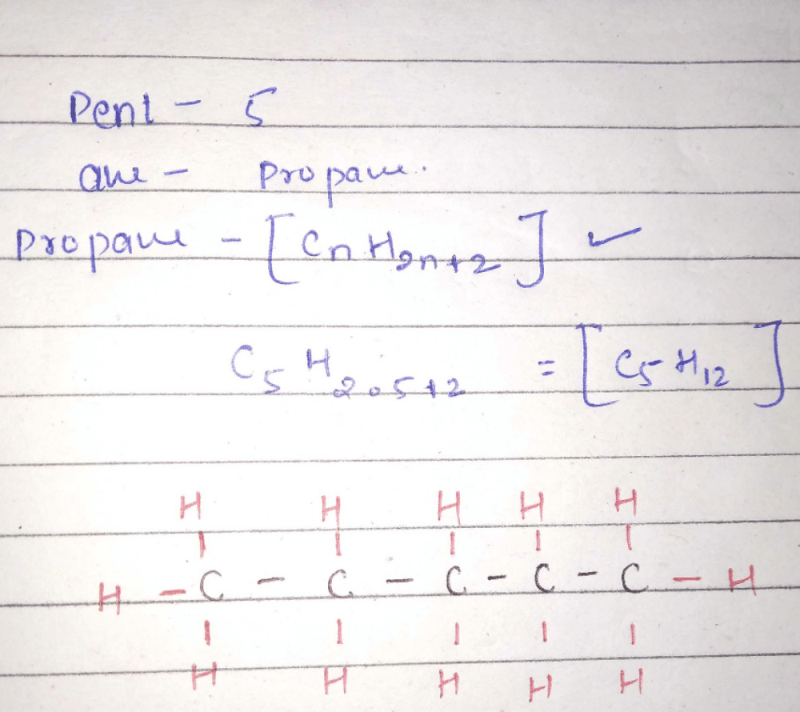 Pent - 5
ane - Propane.
Propane - [CnH2n+2] ✓
C5H2.5+2 = [C5H12]
H H H H H
H - C - C - C - C - C - H
H H H H H